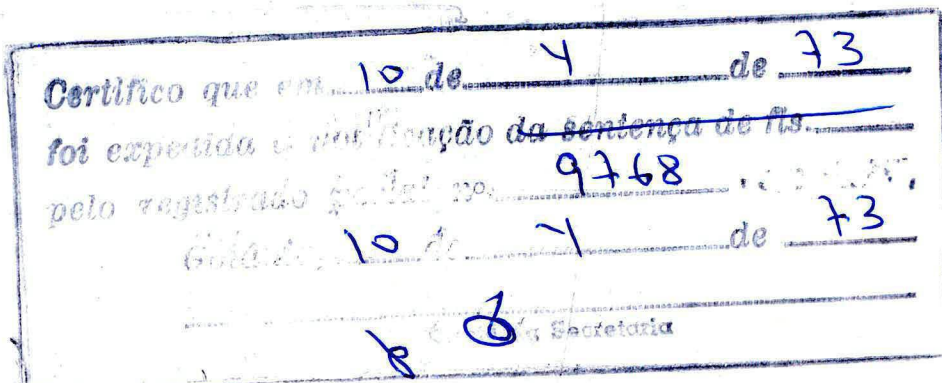 Certifico que em 10 de 4 de 73
foi expedida a notificação da sentença de fls.
pelo registrado postal nº 9768
10 de 4 de 73
da Secretaria